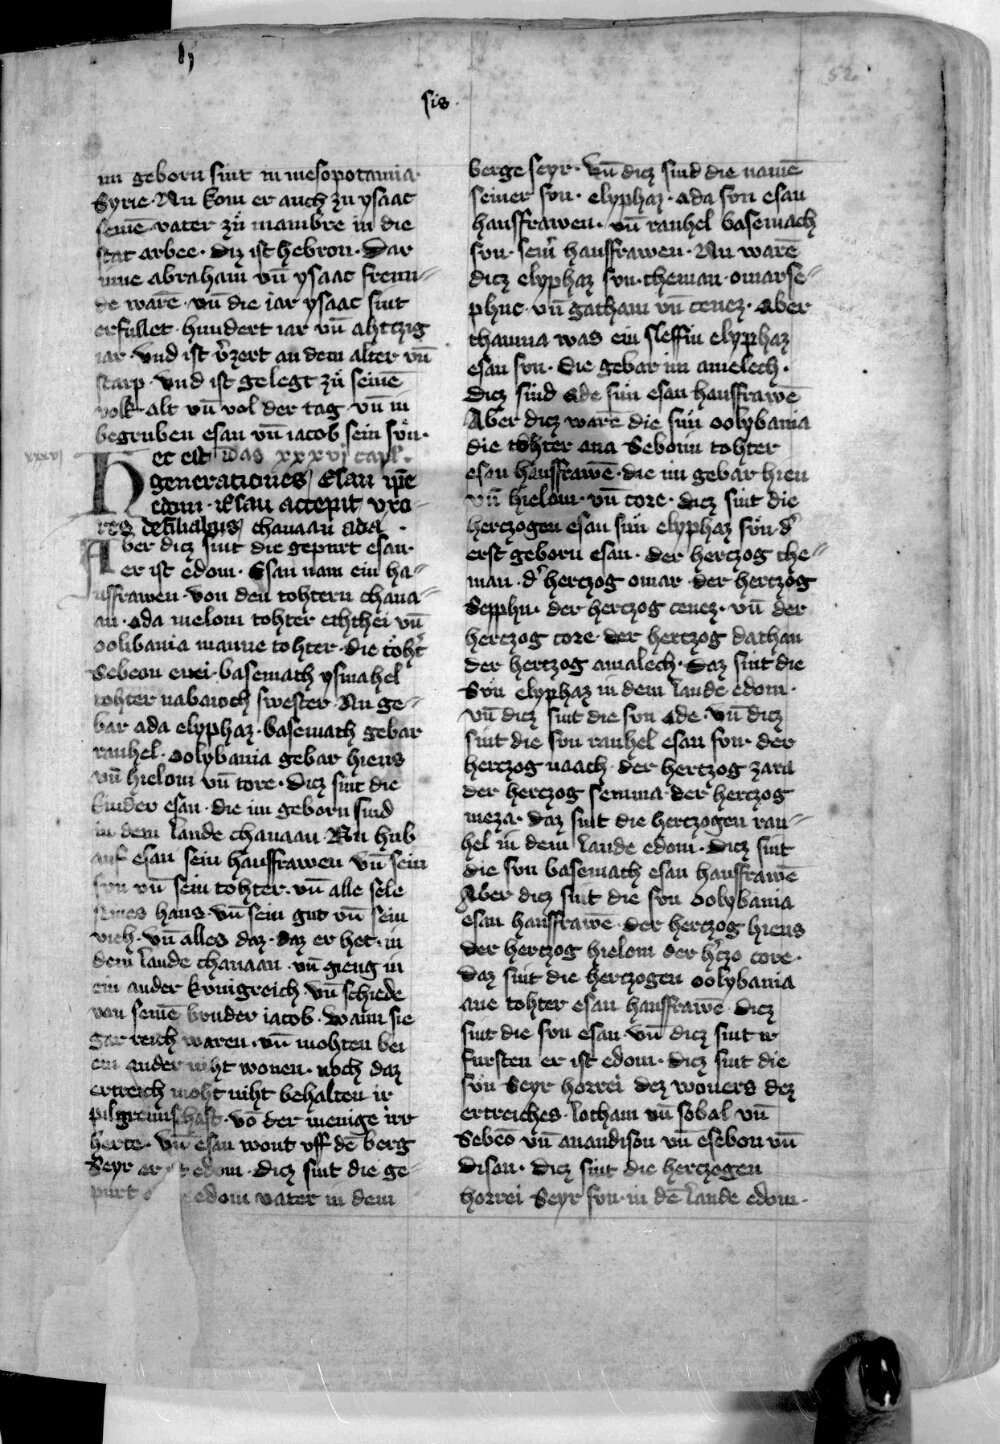 lij
sis
52
im geborn sint in mesopotamia
Syrie · Nu kom er auch zu ysaac
seinē vater zů mambre in die
stat arbee · diz ist hebron · Dar
inne abraham vn̄ ysaac frem⸗
de warē · vn̄ die iar ysaac sint
erfullet · hundert iar vn̄ ahtzig
iar · vnd ist v̓zert an dem alter vn̄
starp · vnd ist gelegt zů seinē
volk alt vn̄ vol der tag · vn̄ in
begruben esau vn̄ iacob sein sŏn ·
xxxvj
Hec est das xxxvj capl̄ ·
generationes Esau ip̄e
edom · Esau accepit vxo⸗
res de filiabus chanaan ada ·
Aber dicz sint die gepurt esau ·
er ist edom · Esau nam ein ha⸗
usfrawen · von den tohtern chana⸗
an · ada melom tohter eththei vn̄
oolibania manne tohter · die toht̓
Sebeon euei · basemath ysmahel
tohter nabaioch swester · Nu ge⸗
bar ada elyphaz · basemath gebar
rauhel · oolybania gebar hieus
vn̄ hielom vn̄ core · dicz sint die
kinder esau · die im geborn sind
in dem lande chanaan · Nu hub
auf esau sein hausfrawen vn̄ sein
sŏn vn̄ sein tohter · vn̄ alle sele
seines haus · vn̄ sein gut vn̄ sein
vieh · vn̄ alles daz · daz er het · in
dem lande chanaan · vn̄ gieng in
ein ander kvnigreich vn̄ schiede
von seinē bruder iacob · Wann sie
gar reich waren · vn̄ mohten bei
ein ander niht wonen · noch daz
ertreich moht niht behalten ir
pilgreimschaft · vō der menige irr
herte · vn̄ esau wont vff dē berg
Seyr er edom · dicz sint die ge⸗
purt edom vater in dem
berge seyr · vn̄ dicz sind die namē
seiner sŏn · elyphaz · ada sŏn esau
hausfrawen · vn̄ rauhel basemach
sŏn · sein̓ hausfrawen · Nu warē
dicz elyphaz sŏn · theman · omar se⸗
phuc · vn̄ gatham vn̄ cenez · aber
thamna was ein sleffin elyphaz
esau sŏn · die gebar im amelech ·
dicz sind ade sŭn esau hausfrawē
Aber dicz warē die sŭn oolybania
die tohter ana Sebonn tohter
esau hausfrawē · die im gebar hieu
vn̄ hielom · vn̄ core · dicz sint die
herczogen esau sŭn elyphaz sŏn d̓
erst geborn esau · der herczog the⸗
man · d̓ herczog omar · der herczog
Sepphu · der herczog cenez · vn̄ der
herczog core · der herczog dathan
der herczog amalech · daz sint die
Sŏn elyphaz in dem lande edom ·
vn̄ dicz sint die sŏn ade · vn̄ dicz
sint die sŏn rauhel esau sŏn · der
herczog naach · der herczog zara
der herczog semma · der herczog
meza · daz sint die herczogen rau⸗
hel in dem lande edom · dicz sint
die sŏn basemach esau hausfrawē
Aber dicz sint die sŏn oolybania
esau hausfrawē · der herczog hieus
der herczog hielom der h̓czo core ·
daz sint die herczogen oolybania
ane tohter esau hausfrawē · dicz
sint die sŏn esau · vn̄ dicz sint ir
fursten er ist edom · dicz sint die
sŏn Seyr horrei dez woners dez
ertreiches · lotham vn̄ sobal vn̄
Sebeō vn̄ anandison vn̄ esebon vn̄
disan · dicz sint die herczogen
horrei Seyr sŏn · in dē lande edom ·